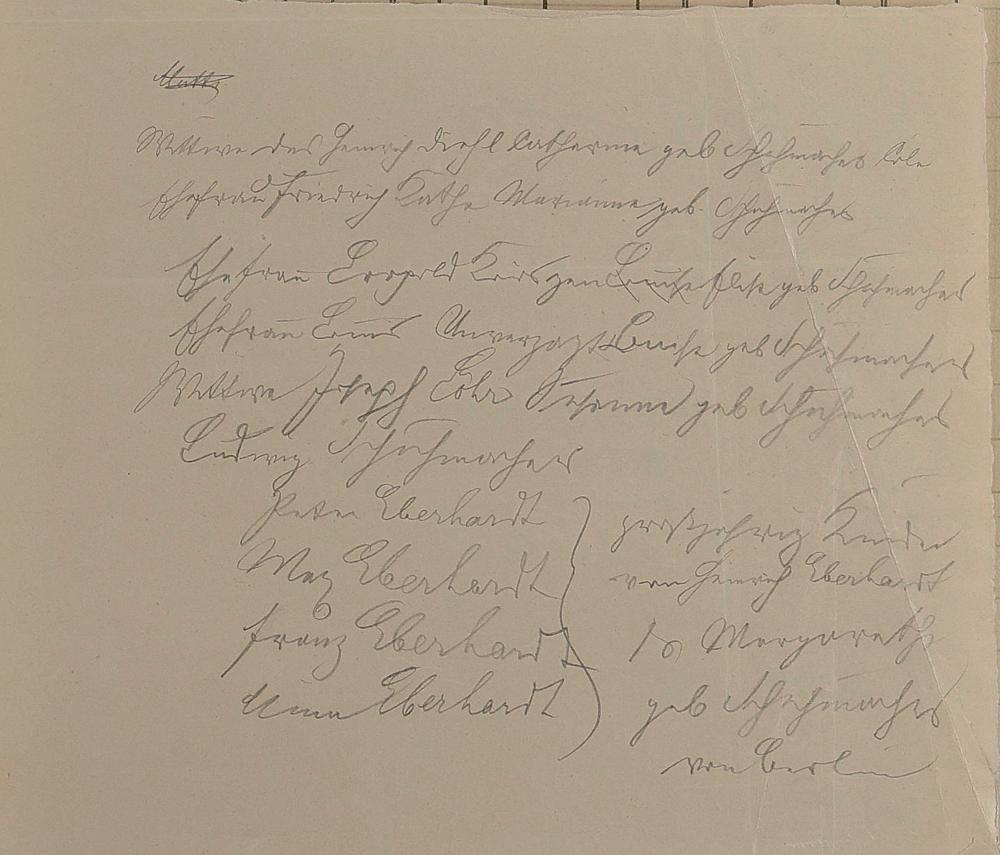 Wittwe des Heinrich Diehl Catharina geb Schuhmacher
Ehefrau Friedrich Kathe Marianne geb. Schuhmacher
Ehefrau Leopold Louise Elise geb Schuhmacher
Ehefrau Louis Unverzagt Louise geb Schuhmacher
Wittwe Joseph Löhr Susanne geb Schuhmacher
Ludwig Schuhmacher
Peter Eberhardt
Max Eberhardt
Franz Eberhardt
Anna Eberhardt
großjährig Kinder
von Heinrich Eberhardt
Margareth
geb Schuhmacher
von Berlin